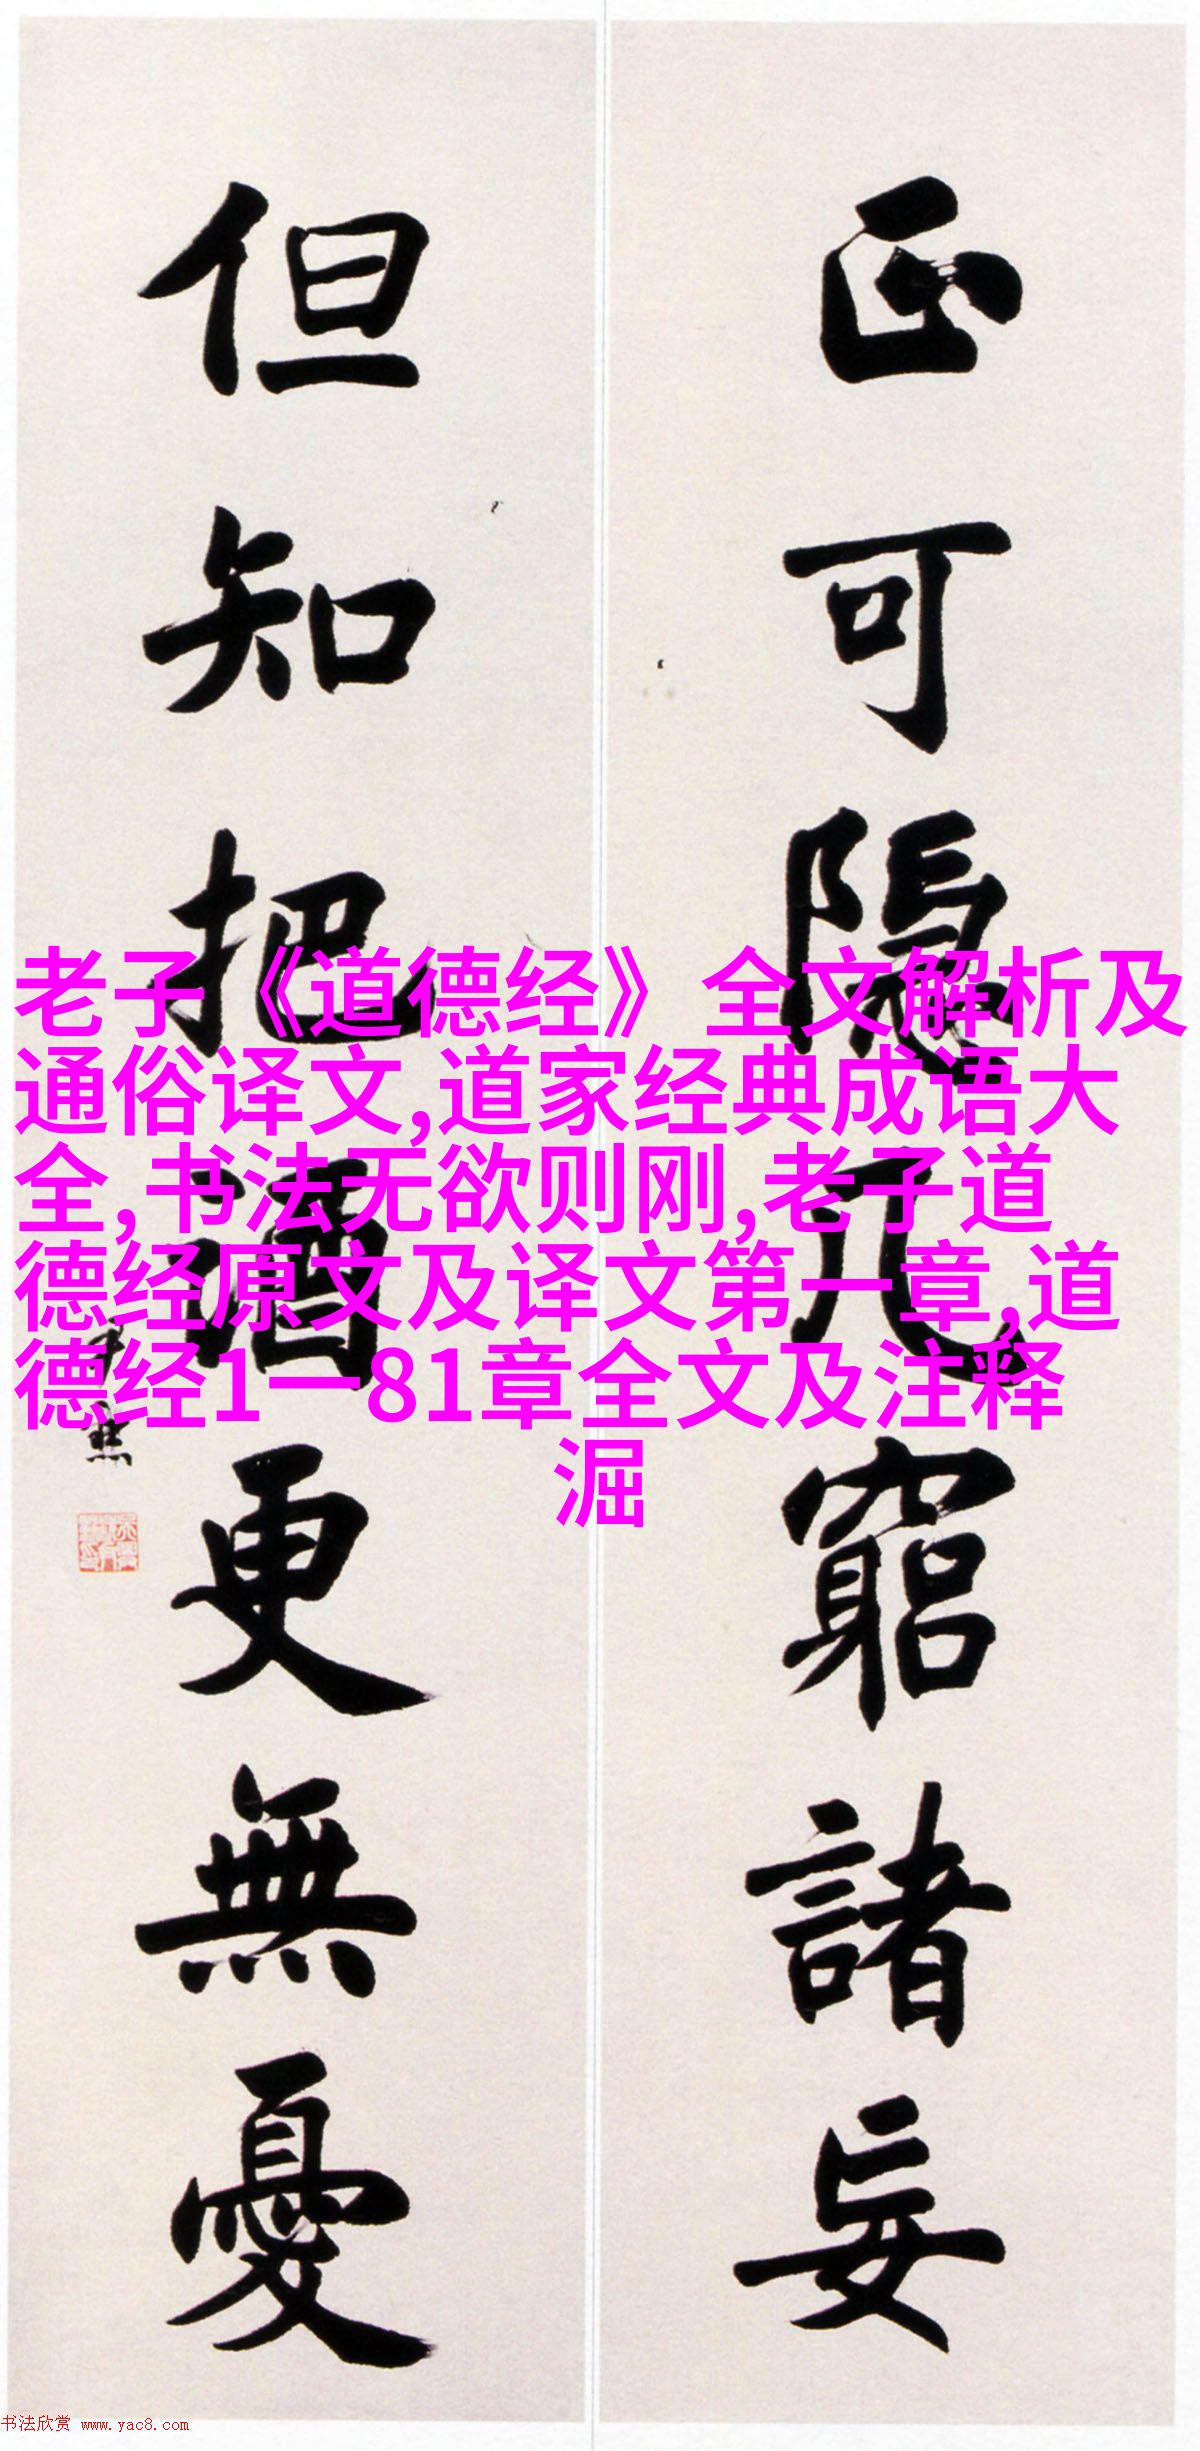 正可隱几窮諸妄
但知把酒更無憂
老子《道德经》全文解析及
通俗译文,道家经典成语大
全,书法无欲则刚,老子道
德经原文及译文第一章,道
德经1一81章全文及注释
淈
书法欣赏 www.yac8.com